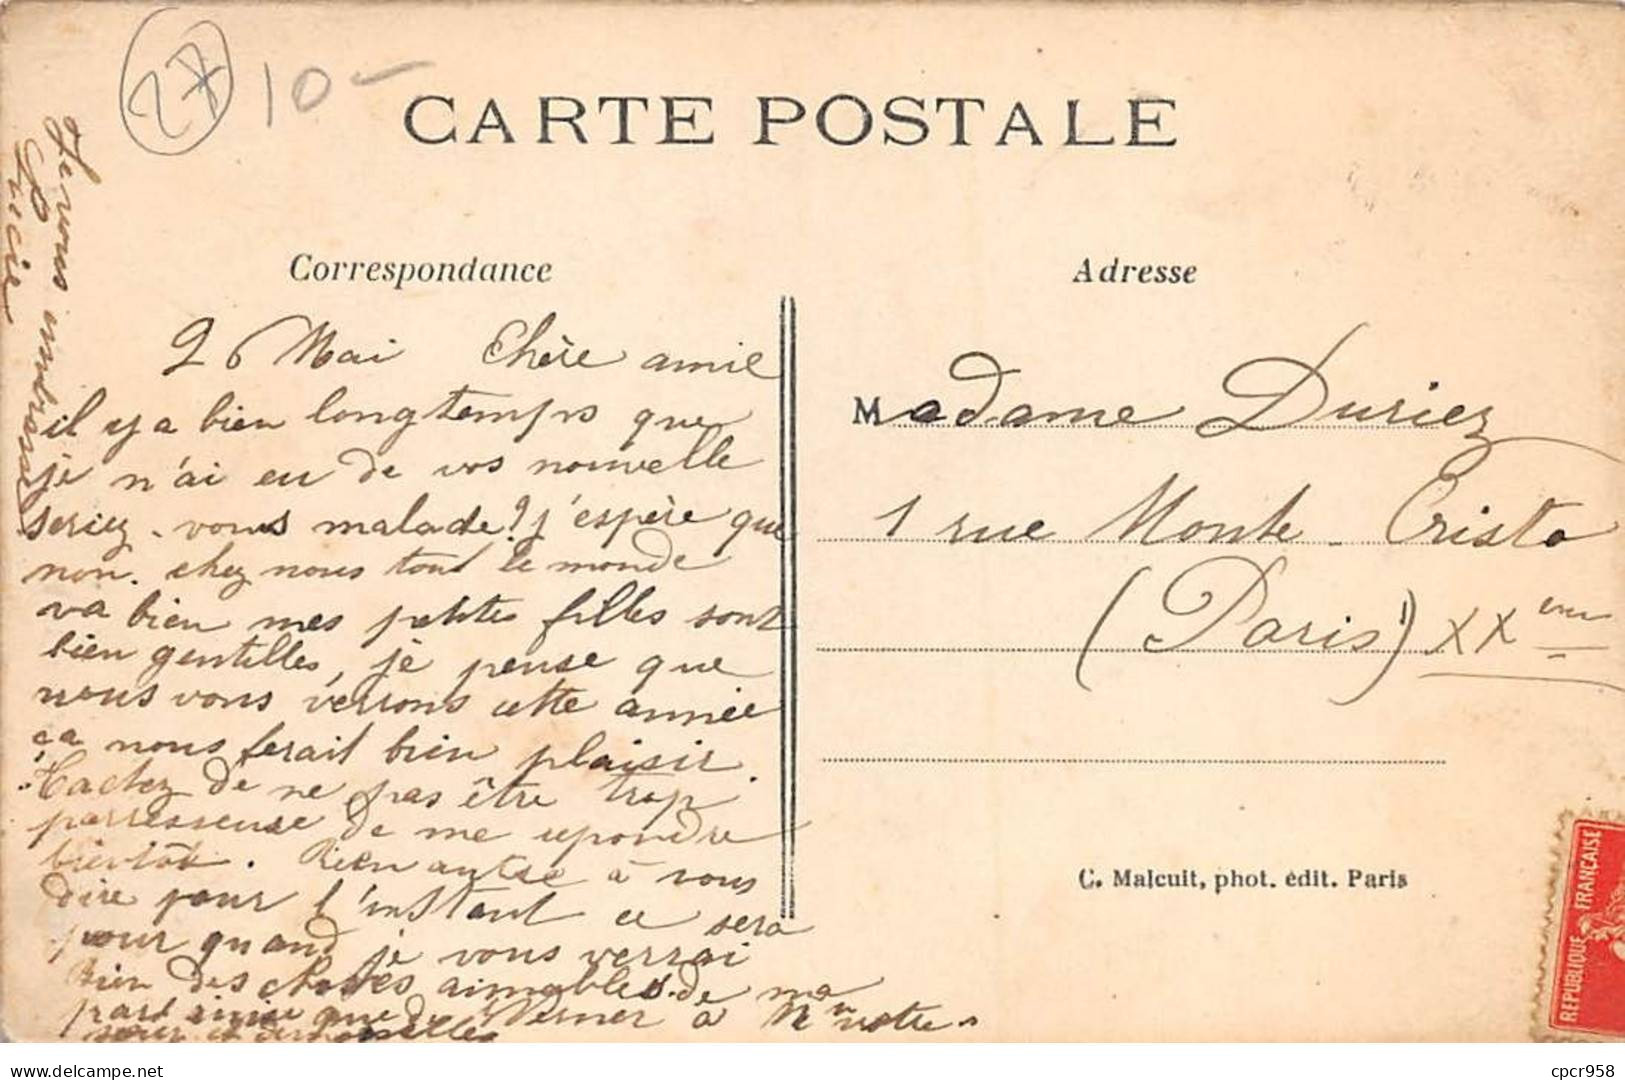 27
10 -
CARTE POSTALE
Correspondance
26 Mai Chère amie
il y a bien longtemps que
je n'ai eu de vos nouvelle
seriez-vous malade? j'espère que
non. chez nous tout le monde
va bien mes petites filles sont
bien gentilles, je pense que
nous vous verrons cette année
ça nous ferait bien plaisir.
Tachez de ne pas être trop
parresseuse de me repondre
bientôt. Rien autre à vous
dire pour l'instant ce sera
pour quand je vous verrai
Bien des choses aimables de ma
part ainsi que de Werner à Mr votre
et demoiselles
Je vous embrasse
Lucie
Adresse
Madame Duriez
1 rue Monte-Cristo
(Paris) XXeme
C. Malcuit, phot. édit. Paris
REPUBLIQUE FRANÇAISE
Visit my store on Delcampe
cpcr958